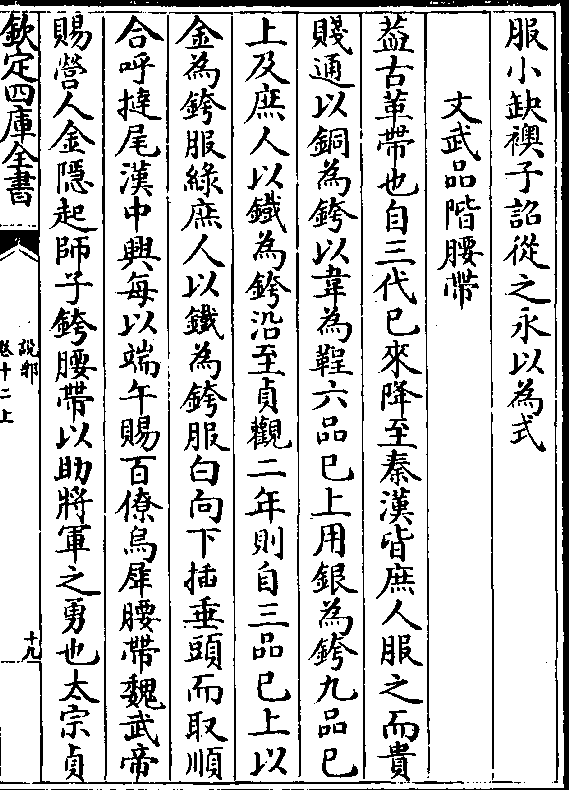 服小缺襖子詔從之永以為式
文武品階腰帶
葢古革帶也自三代已來降至秦漢皆庶人服之而貴
賤通以銅為銙以韋為鞓六品已上用銀為銙九品已
上及庶人以鐵為銙沿至貞觀二年則自三品已上以
金為銙服綠庶人以鐵為銙服白向下插垂頭而取順
合呼撻尾漢中興每以端午賜百僚烏犀腰帶魏武帝
賜營人金隱起師子銙腰帶以助將軍之勇也太宗貞
欽定四庫全書
說郛
卷十二上
十九